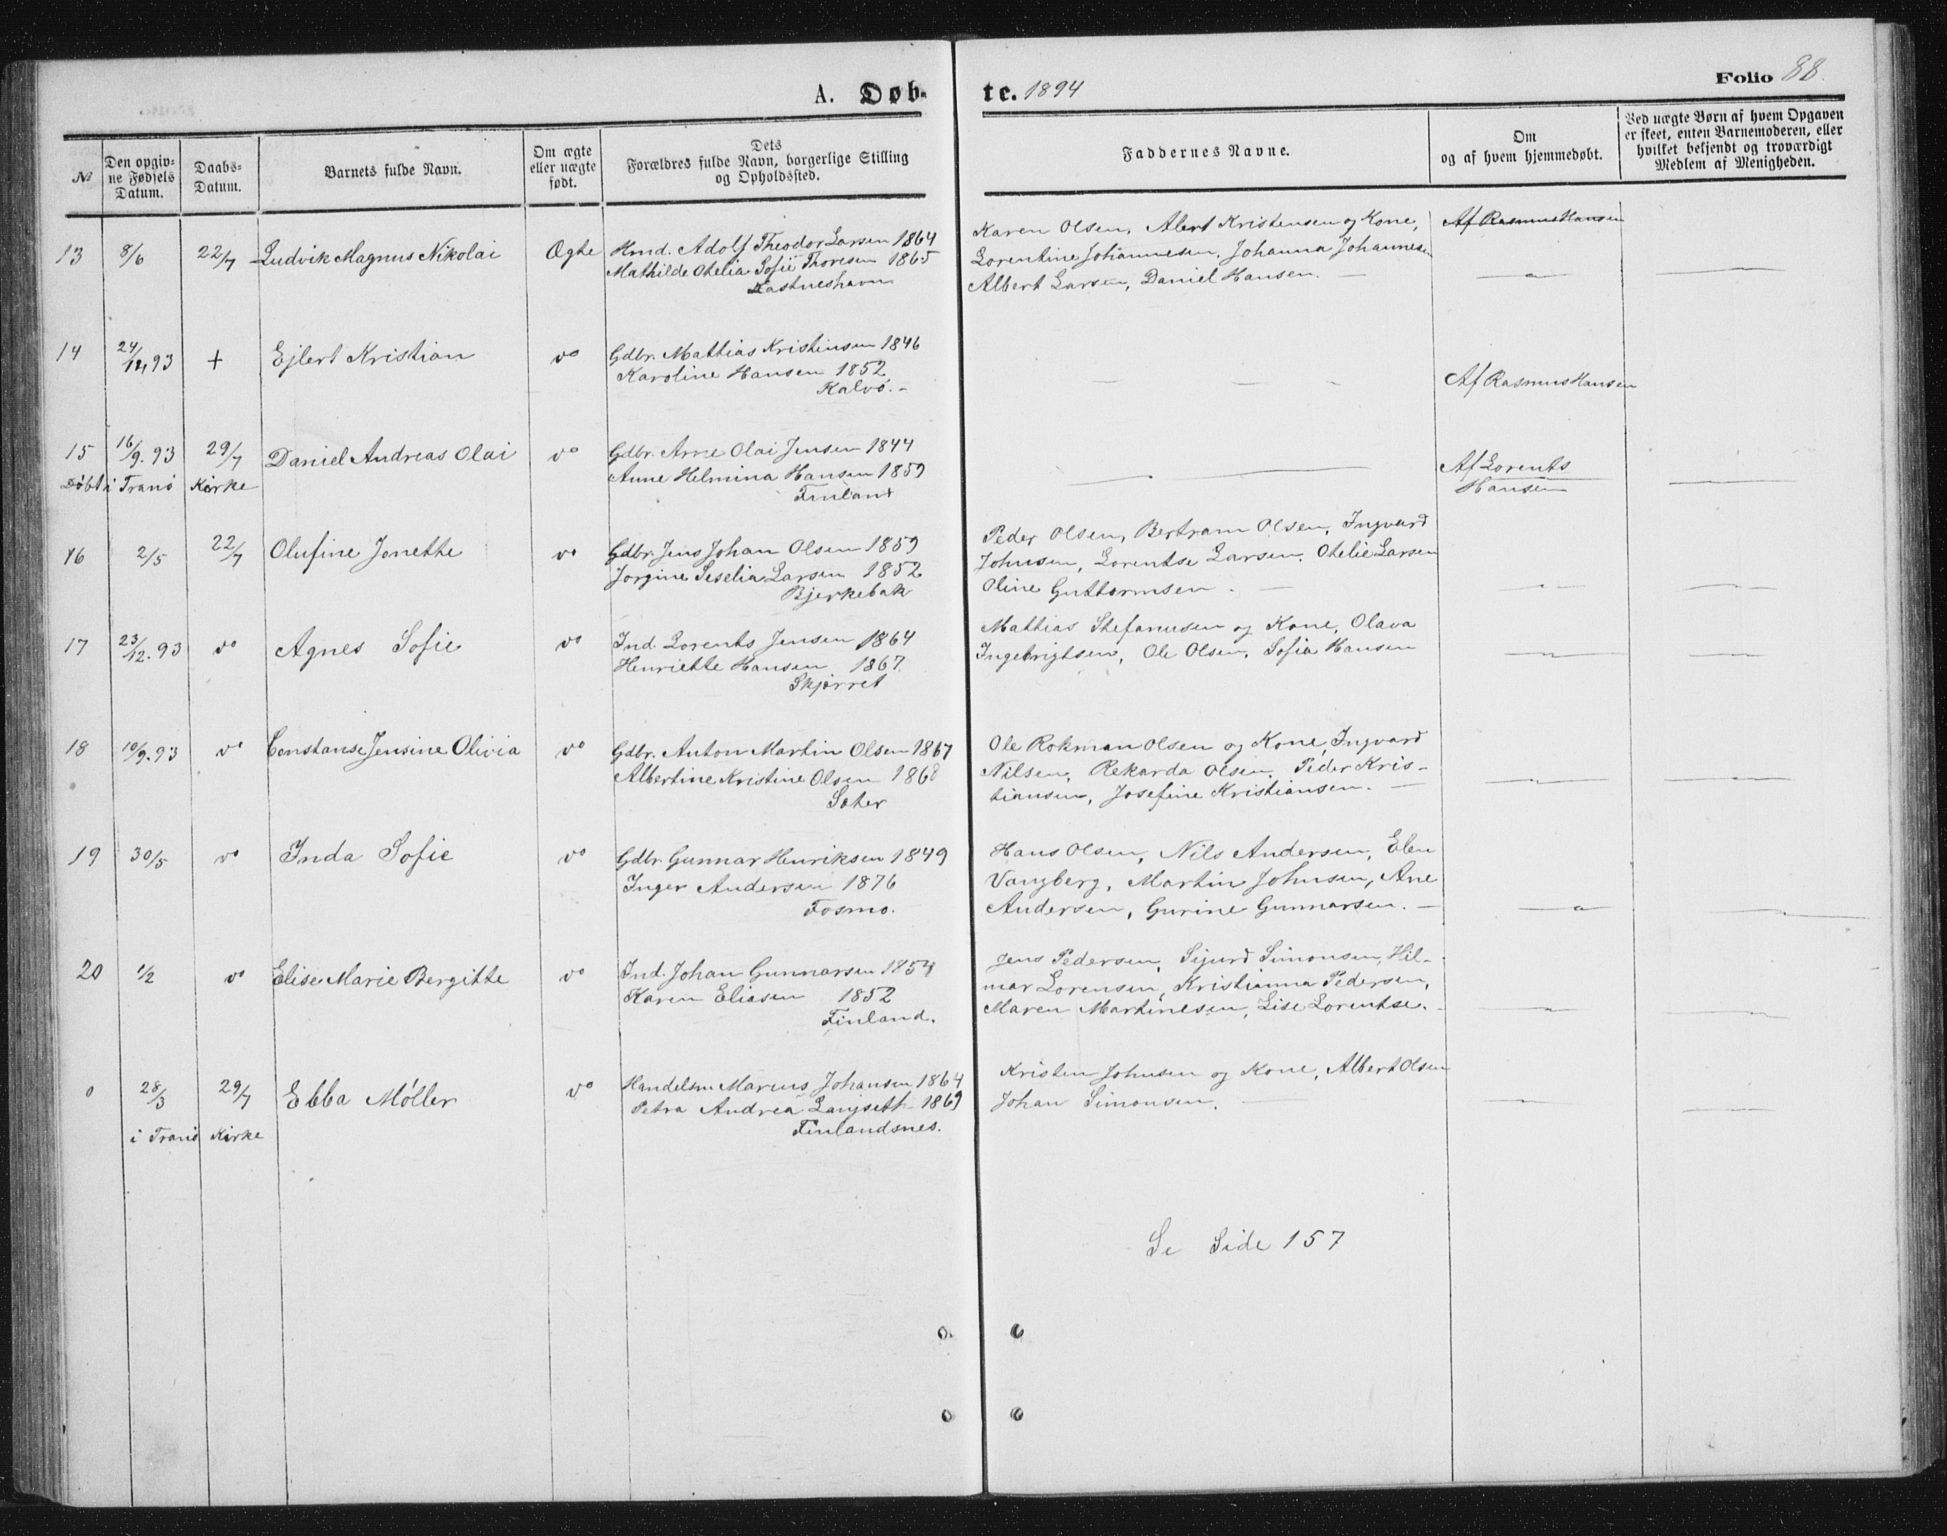 A. Døb-
te. 1894
Folio 88.
№
Den opgiv-
ne Fødsels
Datum.
Daabs-
Datum.
Barnets fulde Navn.
Om ægte
eller uægte
født.
Dets
Forældres fulde Navn, borgerlige Stilling
og Opholdssted.
Faddernes Navne.
Om
og af hvem hjemmedøbt.
Ved uægte Børn af hvem Opgaven
er skeet, enten Barnemoderen, eller
hvilket bekjendt og troværdigt
Medlem af Menigheden.
13 8/6 22/7 Ludvik Magnus Nikolai Ægte Hmd. Adolf Theodor Larsen 1864
Mathilde Otelia Sofie Thoresen 1865
Kastneshavn
Karen Olsen, Alert Kristensen og Kone,
Lorentine Johannesen, Johanna Johannesen
Albert Larsen, Daniel Hansen. —
Af Rasmus Hansen
14 24/12.93 + Ejlert Kristian vo Gdbr. Mattias Kristinsen 1846
Karoline Hansen 1852
Kalvø. -
Af Rasmus Hansen
15 16/9.93 29/7 Daniel Andreas Olai vo Gdbr. Arne Olai Jensen 1844
Døbt i Tranø Kirke
Anne Helmina Hansen 1859
Finland
Af Lorents
Hansen
16 2/5 22/7 Olufine Jonette vo Gdbr. Jens Johan Olsen 1859
Jorgine Seselia Larsen 1852
Bjerkebak
Peder Olsen, Bertram Olsen, Ingvard
Johnsen, Lorentse Larsen, Otelie Larsen
Oline Guttormsen. —
17 23/12.93 vo Agnes Sofie vo Ind. Lorents Jensen 1864
Henriette Hansen 1867.
Skjørret
Mattias Stefanusen og Kone, Olava
Ingebrigtsen, Ole Olsen, Sofia Hansen
18 10/9.93 vo Constanse Jensine Olivia vo Gdbr. Anton Martin Olsen 1867
Albertine Kristine Olsen 1868
Sæter
Ole Rokman Olsen og Kone, Ingvard
Nilsen, Rekarda Olsen, Peder Kris-
tiansen, Josefine Kristiansen. —
19 30/5 vo Inda Sofie vo Gdbr. Gunnar Henriksen 1849
Inger Andersen 1876
Fosmo.
Hans Olsen, Nils Andersen, Elen
Vangberg, Martin Johnsen, Ane
Andersen, Gurine Gunnarsen. —
20 1/2 vo Elise Marie Bergitte vo Ind. Johan Gunnarsen 1854
Karen Eliasen 1852
Finland.
Jens Pedersen, Sigurd Simonsen, Hil-
mar Lorensen, Kristianna Pedersen,
Maren Martinesen, Lise Lorentse.
0 28/3 29/7 Ebba Møller vo Handelsm Marius Johansen 1864
Petra Andrea Langseth 1869
i Tranø Kirke
Finlandsnes.
Kristen Johnsen og Kone, Albert Olsen
Johan Simonsen. —
Se Side 157